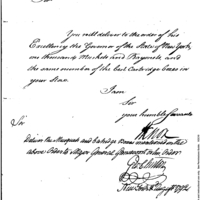 Sir
You will deliver to the order of his
Excellency the Governor of the State of New York
one thousand Muskets and Bayonets and
the same number of the best Cartridge boxes in
your Store.
I am
Sir
your humble Servant
HKnox
Sir
Deliver the Musquets and Cartridge Boxes mentioned in the
above Order to Major General or his Order
Geo Clinton
New York